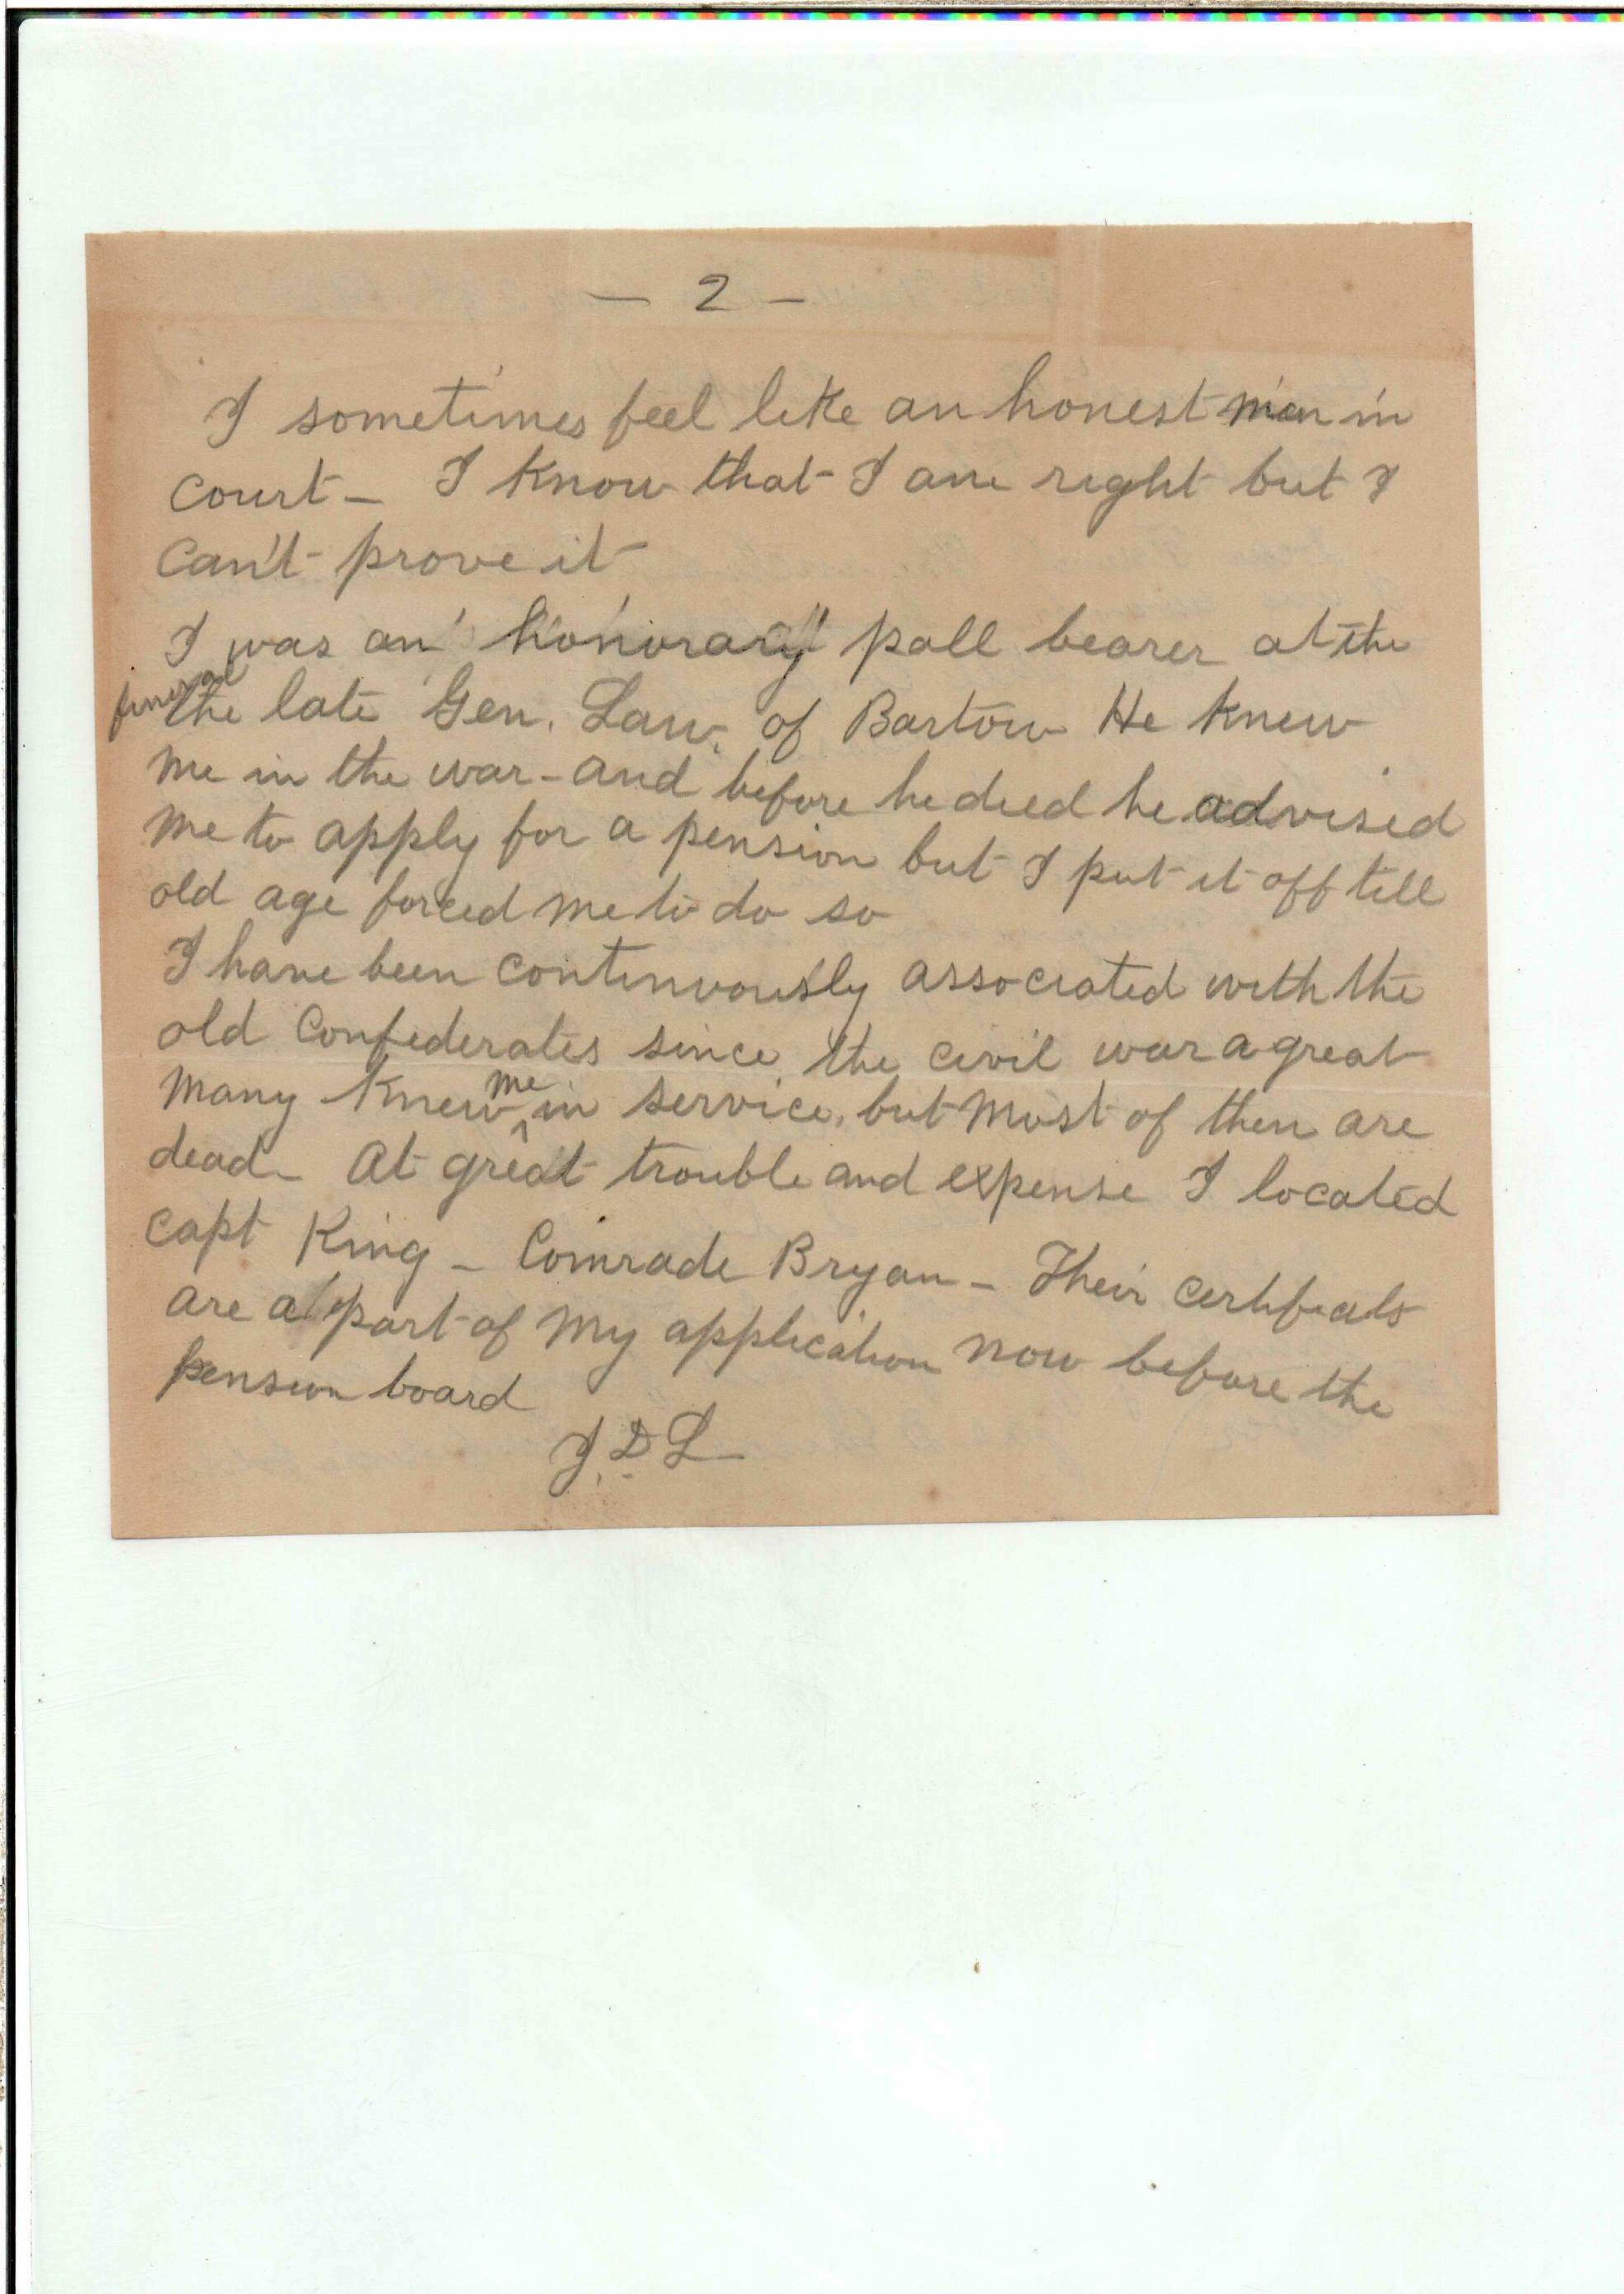 — 2 —
I sometimes feel like an honest man in
court — I know that I am right but I
can't prove it
I was an honorary pall bearer at the
funeral
the late Gen. Law. of Bartow He knew
me in the war - and before he died he advised
me to apply for a pension but I put it off till
old age forced me to do so
I have been continuously associated with the
old Confederates since the civil war a great
many knew me in service, but most of them are
dead — At great trouble and expense I located
Capt King — Comrade Bryan — Their certificats
are a part of my application now before the
pension board
J. D. L